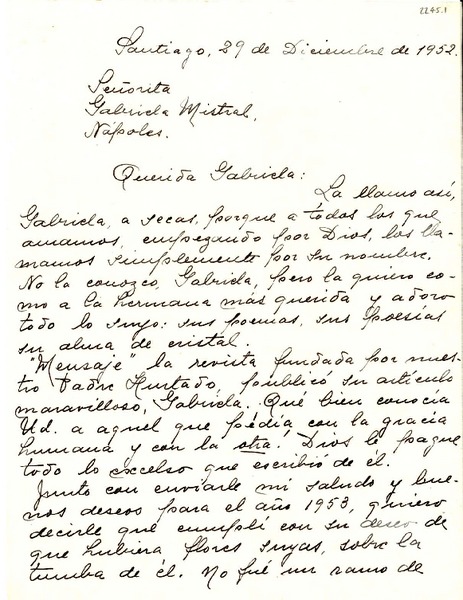 2245.1
Santiago, 29 de Diciembre de 1952.
Señorita
Gabriela Mistral,
Nápoles.
Querida Gabriela:
La llamo así,
Gabriela, a secas, porque a todos los que
amamos, empezando por Dios, los lla-
mamos simplemente por su nombre.
No la conozco, Gabriela, pero la quiero co-
mo a la hermana más querida y adoro
todo lo suyo: sus poemas, sus poesías
su alma de cristal.
"Mensaje" la revista fundada por nues-
tro Padre Hurtado, publicó su artículo
maravilloso, Gabriela. Qué bien conocía
Ud. a aquel que pedía con la gracia
humana y con la otra! Dios le pague
todo lo excelso que escribió de él.
Junto con enviarle mi saludo y bue-
nos deseos para el año 1953, quiero
decirle que cumplí con su deseo de
que hubiera flores suyas, sobre la
tumba de él. No fué un ramo de